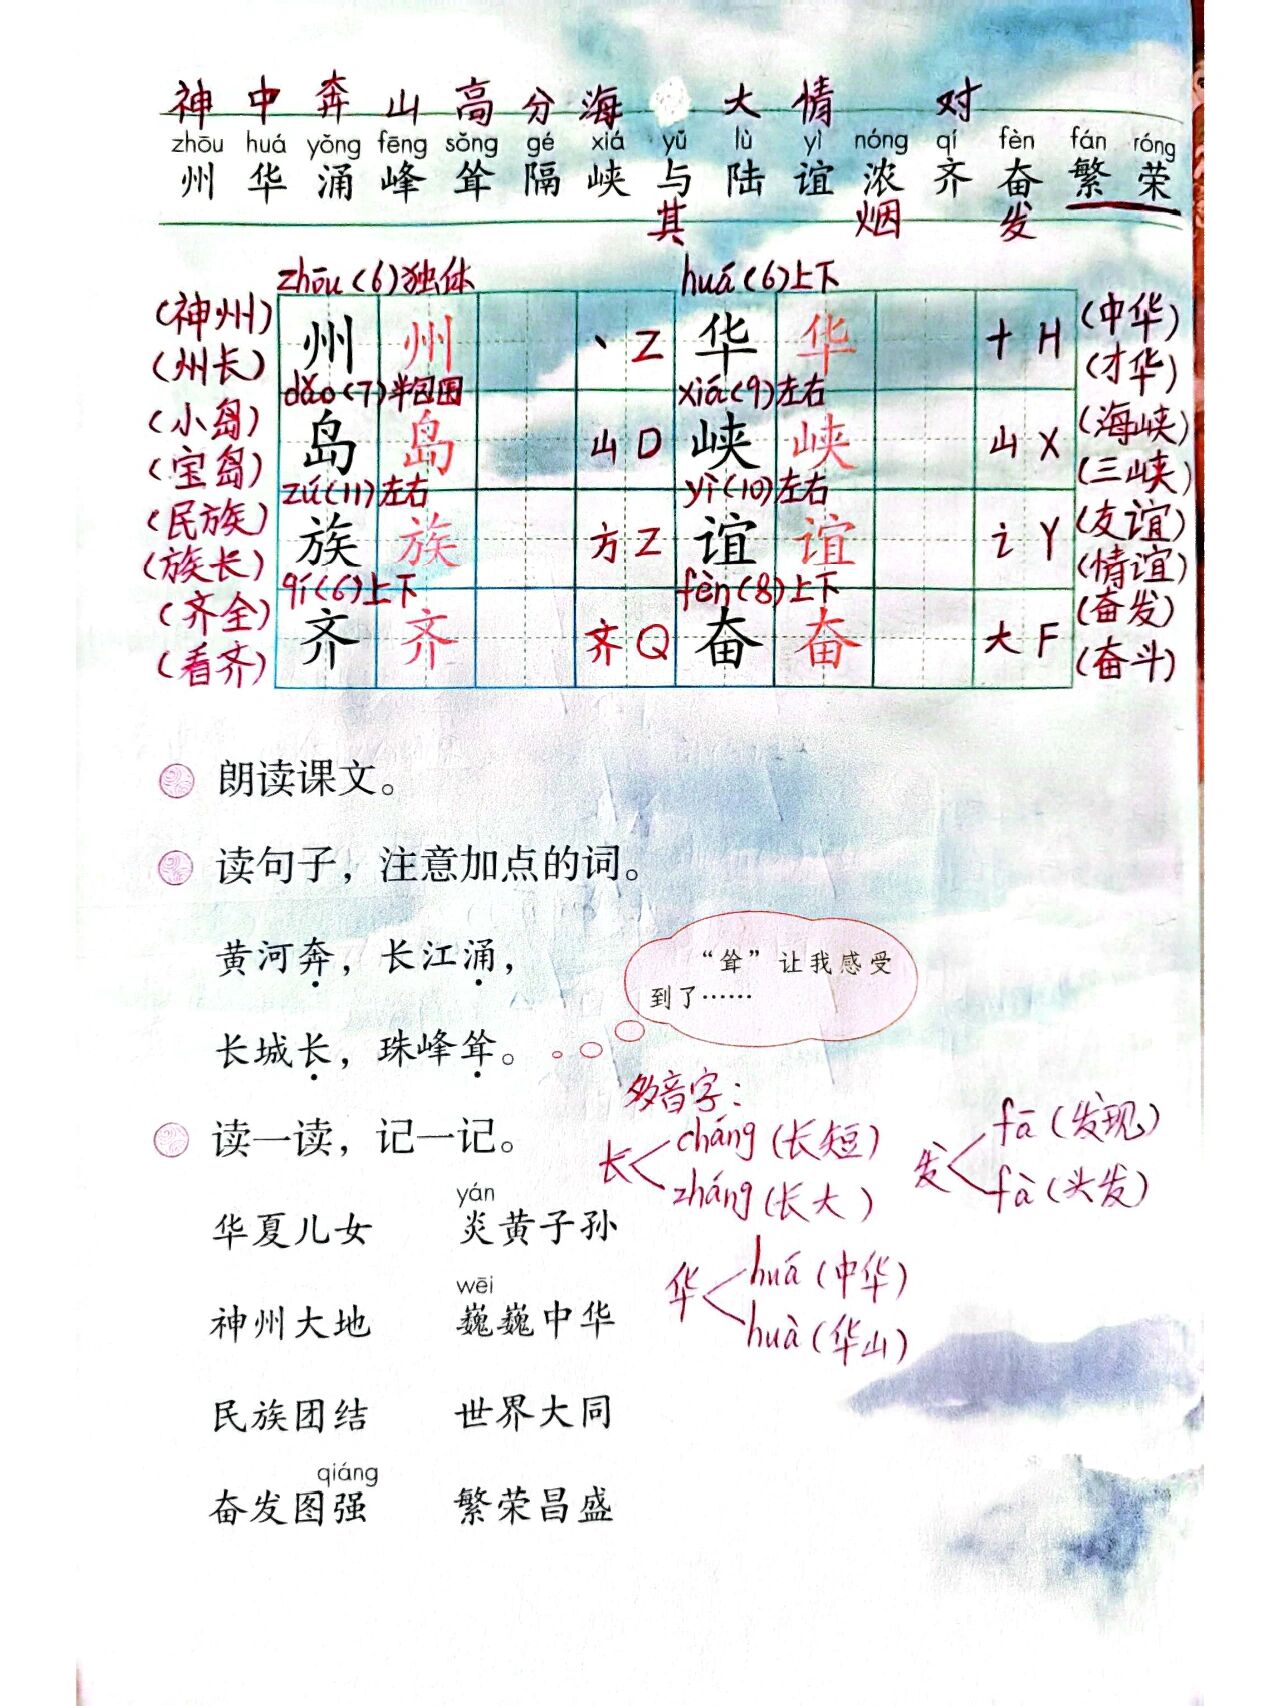 神 中 奔 山 高 分 海 大 情 对
zhōu huá yǒng fēng sǒng gé xiá yǔ lù yì nóng qí fèn fán róng
州 华 涌 峰 耸 隔 峡 与 陆 谊 浓 齐 奋 繁 荣
其 烟 发
zhōu(6)独体 huá(6)上下
(神州) 州 州 丶 Z 华 华 十 H (中华)
(州长) (才华)
dǎo(7)半包围 xiá(9)左右
(小岛) 岛 岛 山 D 峡 峡 山 X (海峡)
(宝岛) (三峡)
zú(11)左右 yì(10)左右
(民族) 族 族 方 Z 谊 谊 讠 Y (友谊)
(族长) (情谊)
qí(6)上下 fèn(8)上下
(齐全) 齐 齐 齐 Q 奋 奋 大 F (奋发)
(看齐) (奋斗)
朗读课文。
读句子，注意加点的词。
黄河奔，长江涌，
长城长，珠峰耸。
“耸”让我感受
到了……
多音字：
长 cháng(长短)
zhǎng(长大)
发 fā(发现)
fà(头发)
华 huá(中华)
huà(华山)
读一读，记一记。
yán
华夏儿女 炎黄子孙
wēi
神州大地 巍巍中华
民族团结 世界大同
qiáng
奋发图强 繁荣昌盛